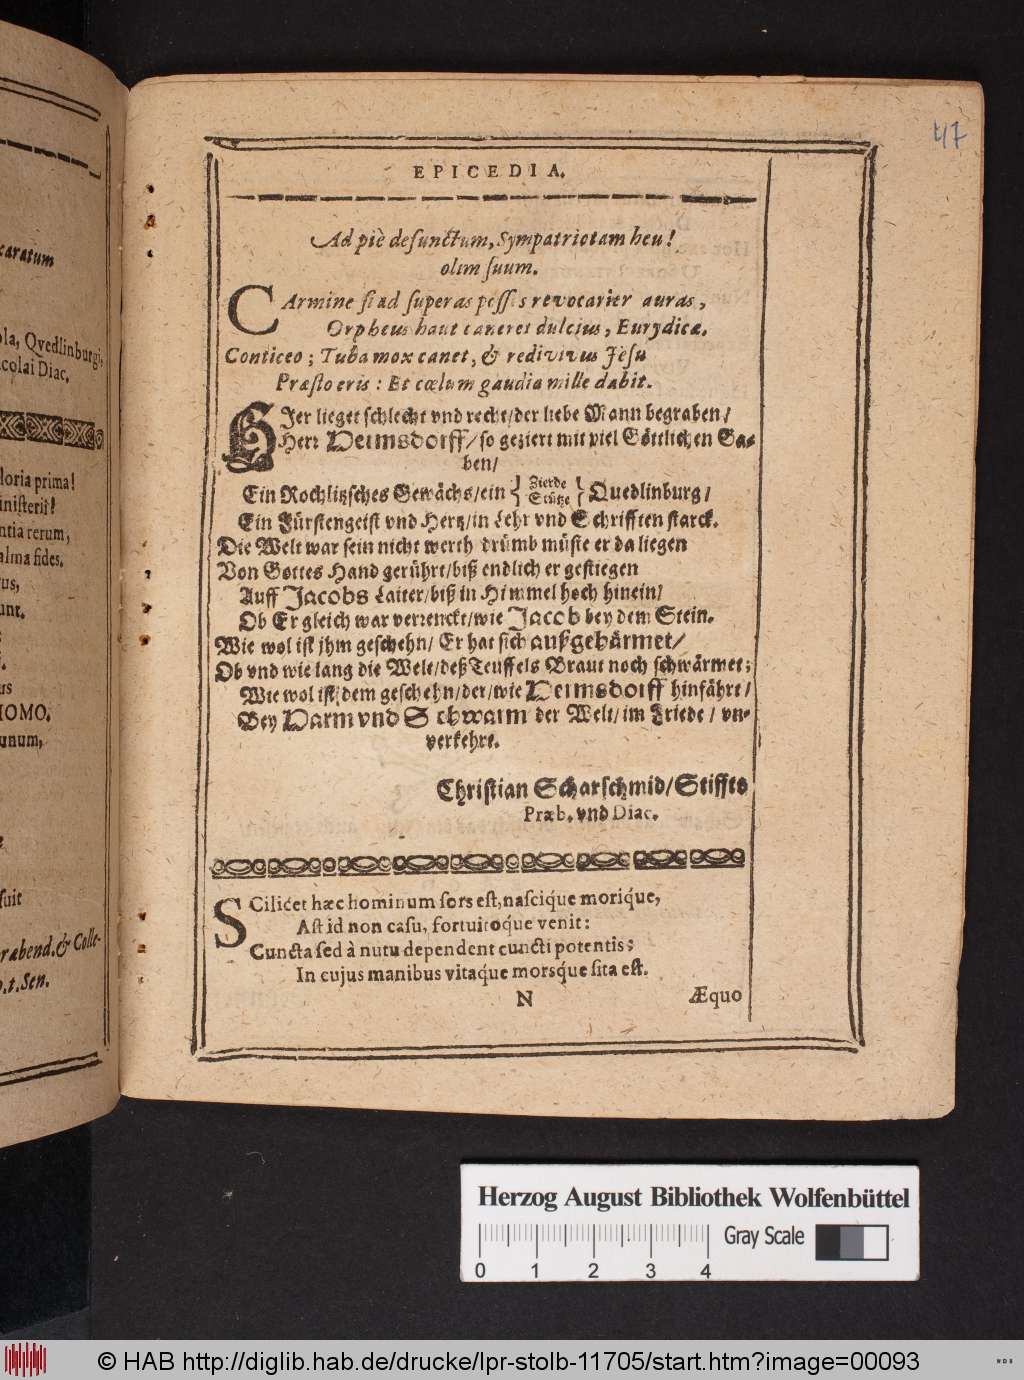 caratum
ola, Qvedlinburgi,
icolai Diac.
loria prima!
inisterii!
ntia rerum,
alma fides.
us,
unt.
us
HOMO.
unum,
suit
rabend. & Colle-
p. t. Sen.
47
EPICEDIA.
Ad piè defunctum, Sympatriotam heu!
olim suum.
CArmine si ad superas posses revocarier auras,
Orpheus haut caneret dulcius, Eurydicæ.
Conticeo; Tuba mox canet, & redivivus Jesu
Præsto eris: Et cœlum gaudia mille dabit.
HJer lieget schlecht vnd recht/der liebe Mann begraben/
Herr Deimsdorff/so geziert mit viel Göttlichen Ga-
ben/
Ein Rochlitzsches Gewächs/ein { Zierde Stütze } Quedlinburg/
Ein Fürstengeist vnd Hertz/in Lehr vnd Schrifften starck.
Die Welt war sein nicht werth drümb müste er da liegen
Von Gottes Hand gerührt/biß endlich er gestiegen
Auff Jacobs Laiter/biß in Himmel hoch hinein/
Ob Er gleich war verrenckt/wie Jacob bey dem Stein.
Wie wol ist jhm geschehn/ Er hat sich außgehärmet/
Ob vnd wie lang die Welt/deß Teuffels Braut noch schwärmet;
Wie wol ist/dem geschehn/der/wie Deimsdorff hinfährt/
Bey Harm vnd Schwarm der Welt/im Friede/ vn-
verkehrt.
Christian Scharschmid/Stiffts
Præb. vnd Diac.
SCilicet hæc hominum sors est, nascique morique,
Ast id non casu, fortuitoque venit:
Cuncta sed à nutu dependent cuncti potentis;
In cujus manibus vitaque morsque sita est.
N
Æquo
Herzog August Bibliothek Wolfenbüttel
Gray Scale
0 1 2 3 4
© HAB http://diglib.hab.de/drucke/lpr-stolb-11705/start.htm?image=00093